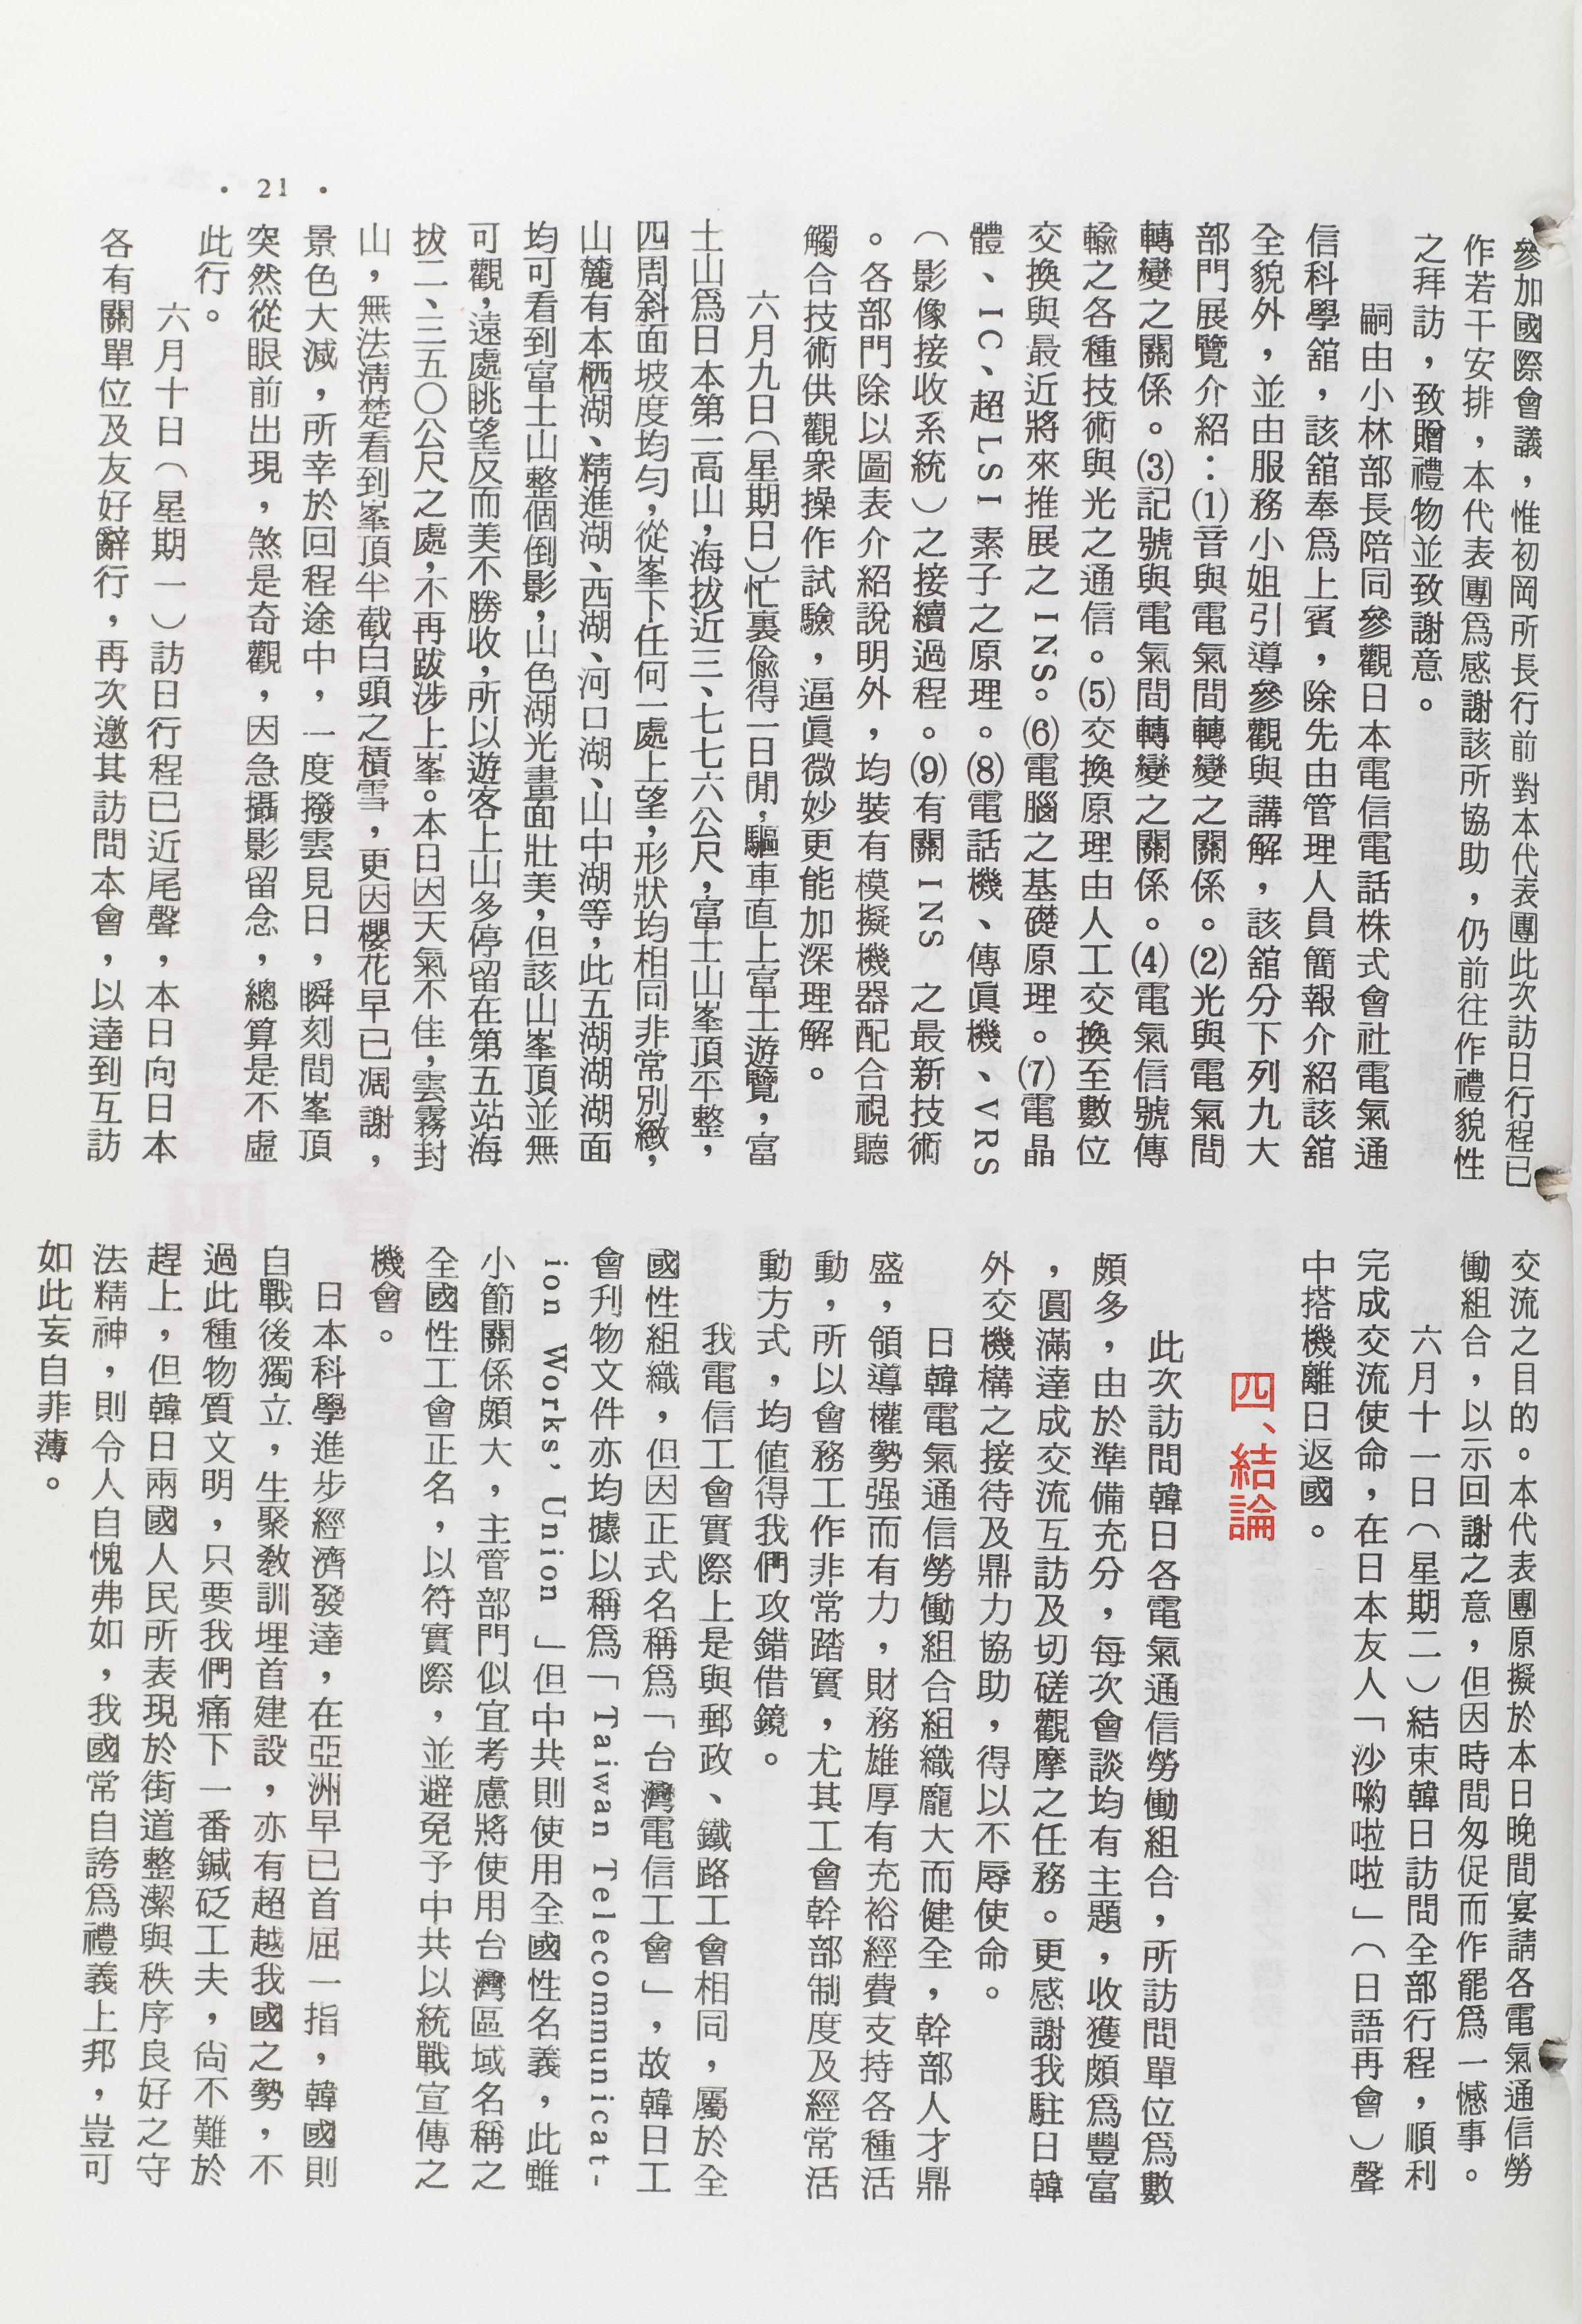 參加國際會議，惟初岡所長行前對本代表團此次訪日行程已
作若干安排，本代表團爲感謝該所協助，仍前往作禮貌性
之拜訪，致贈禮物並致謝意。
嗣由小林部長陪同參觀日本電信電話株式會社電氣通
信科學舘，該舘奉爲上賓，除先由管理人員簡報介紹該舘
全貌外，並由服務小姐引導參觀與講解，該舘分下列九大
部門展覽介紹：⑴音與電氣間轉變之關係。⑵光與電氣間
轉變之關係。⑶記號與電氣間轉變之關係。⑷電氣信號傳
輸之各種技術與光之通信。⑸交換原理由人工交換至數位
交換與最近將來推展之INS。⑹電腦之基礎原理。⑺電晶
體、IC、超LSI素子之原理。⑻電話機、傳眞機、VRS
（影像接收系統）之接續過程。⑼有關INS之最新技術
。各部門除以圖表介紹說明外，均裝有模擬機器配合視聽
觸合技術供觀衆操作試驗，逼眞微妙更能加深理解。
六月九日（星期日）忙裏偸得一日閒，驅車直上富士遊覽，富
士山爲日本第一高山，海拔近三、七七六公尺，富士山峯頂平整，
四周斜面坡度均勻，從峯下任何一處上望，形狀均相同非常別緻，
山麓有本栖湖、精進湖、西湖、河口湖、山中湖等，此五湖湖湖面
均可看到富士山整個倒影，山色湖光畫面壯美，但該山峯頂並無
可觀，遠處眺望反而美不勝收，所以遊客上山多停留在第五站海
拔二、三五〇公尺之處，不再跋涉上峯。本日因天氣不佳，雲霧封
山，無法淸楚看到峯頂半截白頭之積雪，更因櫻花早已凋謝，
景色大減，所幸於回程途中，一度撥雲見日，瞬刻間峯頂
突然從眼前出現，煞是奇觀，因急攝影留念，總算是不虛
此行。
六月十日（星期一）訪日行程已近尾聲，本日向日本
各有關單位及友好辭行，再次邀其訪問本會，以達到互訪
• 21 •
交流之目的。本代表團原擬於本日晚間宴請各電氣通信勞
働組合，以示回謝之意，但因時間匆促而作罷爲一憾事。
六月十一日（星期二）結束韓日訪問全部行程，順利
完成交流使命，在日本友人「沙喲啦啦」（日語再會）聲
中搭機離日返國。
四、結論
此次訪問韓日各電氣通信勞働組合，所訪問單位爲數
頗多，由於準備充分，每次會談均有主題，收獲頗爲豐富
，圓滿達成交流互訪及切磋觀摩之任務。更感謝我駐日韓
外交機構之接待及鼎力協助，得以不辱使命。
日韓電氣通信勞働組合組織龐大而健全，幹部人才鼎
盛，領導權勢强而有力，財務雄厚有充裕經費支持各種活
動，所以會務工作非常踏實，尤其工會幹部制度及經常活
動方式，均値得我們攻錯借鏡。
我電信工會實際上是與郵政、鐵路工會相同，屬於全
國性組織，但因正式名稱爲「台灣電信工會」，故韓日工
會刊物文件亦均據以稱爲「Taiwan Telecommunicat-
ion Works' Union 」但中共則使用全國性名義，此雖
小節關係頗大，主管部門似宜考慮將使用台灣區域名稱之
全國性工會正名，以符實際，並避免予中共以統戰宣傳之
機會。
日本科學進步經濟發達，在亞洲早已首屈一指，韓國則
自戰後獨立，生聚敎訓埋首建設，亦有超越我國之勢，不
過此種物質文明，只要我們痛下一番鍼砭工夫，尙不難於
趕上，但韓日兩國人民所表現於街道整潔與秩序良好之守
法精神，則令人自愧弗如，我國常自誇爲禮義上邦，豈可
如此妄自菲薄。